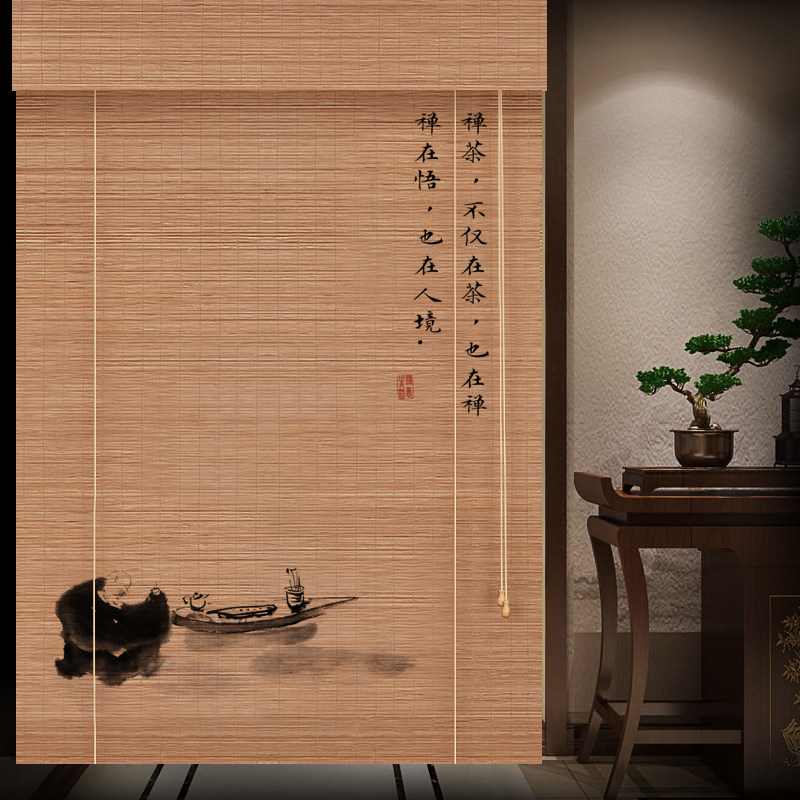 禅茶，不仅在茶，也在禅
禅在悟，也在人境.